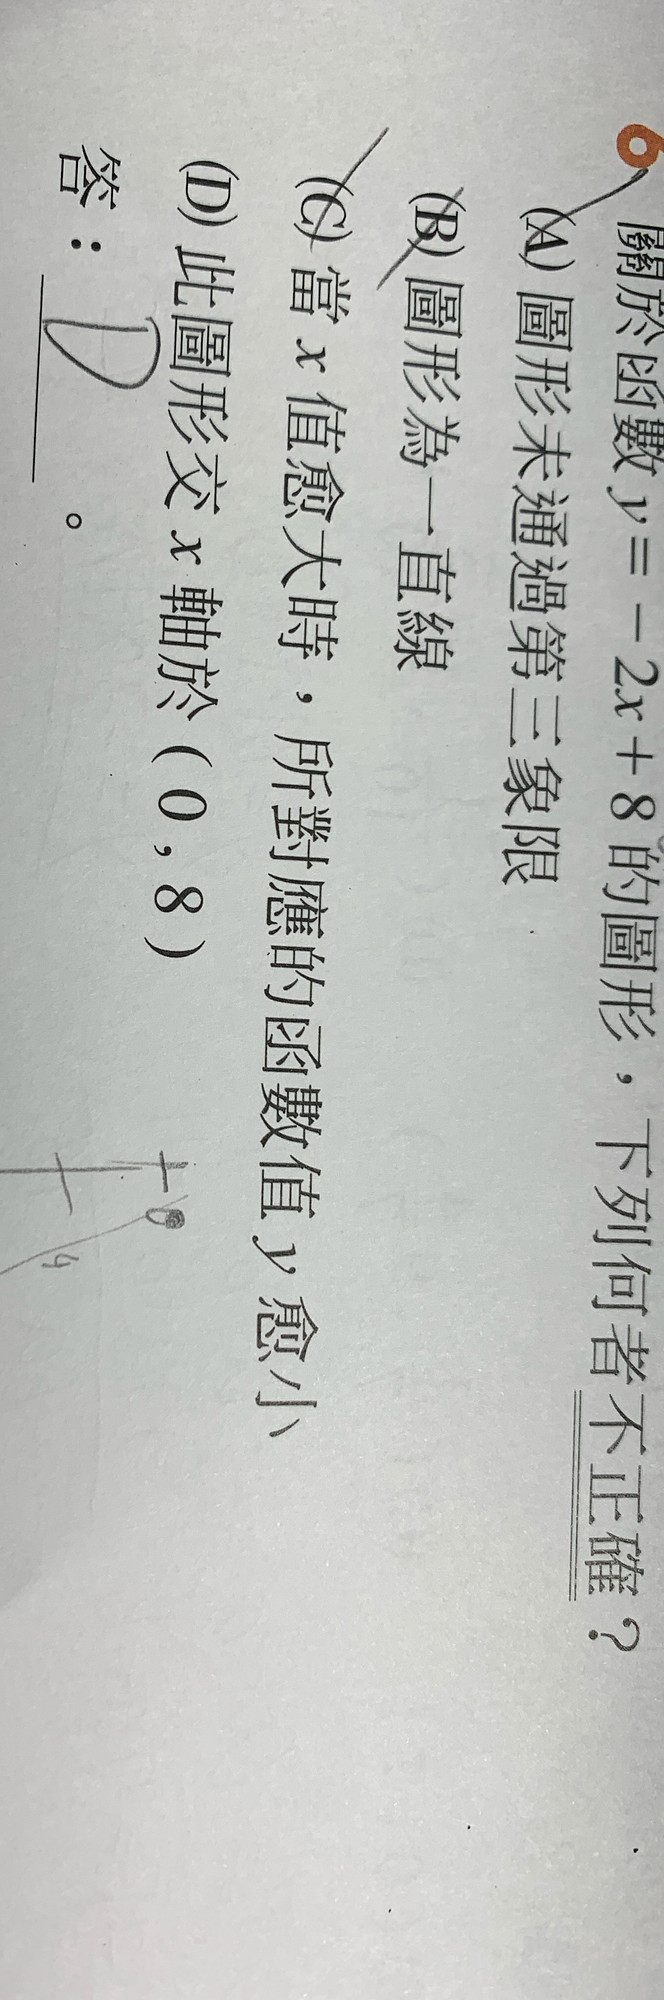 6 關於函數 y = －2x＋8 的圖形，下列何者不正確？
(A) 圖形未通過第三象限
(B) 圖形為一直線
(C) 當 x 值愈大時，所對應的函數值 y 愈小
(D) 此圖形交 x 軸於 ( 0 , 8 )
答： D 。
8
4